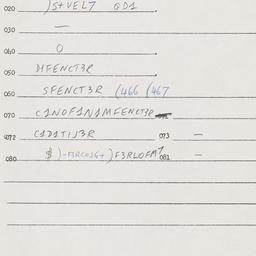 020 )S+VEL7 QD1
030 —
040 O
050 HFENCT3R
060 SFENCT3R (466 (467
070 C1NOF1N1MFENCT3R
072 C1D1TIJ3R 073 —
080 $ )-F3RCOJG+)F3RLOFM7 081 —